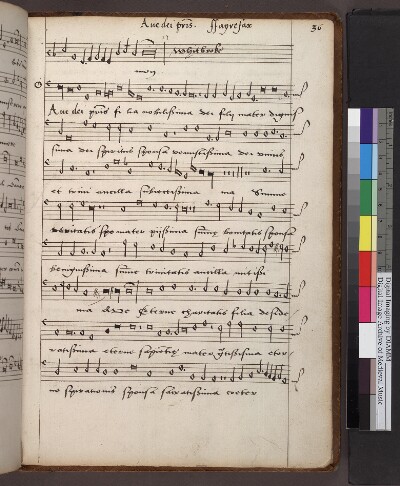 Ave dei pris. ffayrefax 36
Whytbroke
Ave dei pris fi lia nobilissima dei filij mater dignis
sima dei spiritus sponsa venustissima dei unius
et trini ancilla subiectissima ma Summe
eternitatis spe mater pijssima summe bonitatis sponsa
benignissima summe trinitatis ancilla mitissi
ma Ave Eterne charitatis filia deside
ratissima eterne sapientie mater gratissima eter
ne spirationis sponsa sacratissima coeter
Digital Imaging by DIAMM
Digital Image Archive of Medieval Music